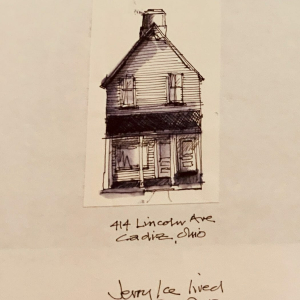 414 Lincoln Ave
Cadiz, Ohio
Jerry Ice lived